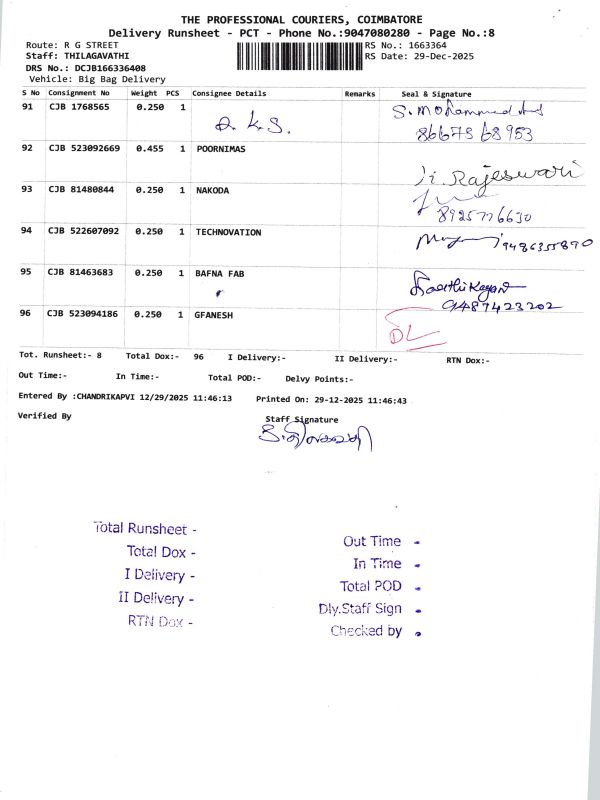 THE PROFESSIONAL COURIERS, COIMBATORE
Delivery Runsheet - PCT - Phone No.:9047080280 - Page No.:8
Route: R G STREET RS No.: 1663364
Staff: THILAGAVATHI RS Date: 29-Dec-2025
DRS No.: DCJB166336408
Vehicle: Big Bag Delivery
S No Consignment No Weight PCS Consignee Details Remarks Seal & Signature
91 CJB 1768565 0.250 1
92 CJB 523092669 0.455 1 POORNIMAS
93 CJB 81480844 0.250 1 NAKODA
8925776630
94 CJB 522607092 0.250 1 TECHNOVATION
95 CJB 81463683 0.250 1 BAFNA FAB
9487423202
96 CJB 523094186 0.250 1 GFANESH
DL
Tot. Runsheet:- 8 Total Dox:- 96 I Delivery:- II Delivery:- RTN Dox:-
Out Time:- In Time:- Total POD:- Delvy Points:-
Entered By :CHANDRIKAPVI 12/29/2025 11:46:13 Printed On: 29-12-2025 11:46:43
Verified By Staff Signature
Total Runsheet -
Total Dox -
I Delivery -
II Delivery -
RTN Dox -
Out Time -
In Time -
Total POD -
Dly.Staff Sign -
Checked by -